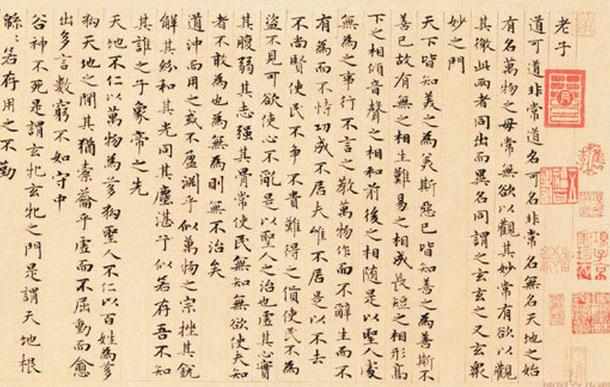 老子
道可道非常道名可名非常名無名天地之始
有名萬物之母常無欲以觀其妙常有欲以觀
其徼此兩者同出而異名同謂之玄玄之又玄衆
妙之門
天下皆知美之為美斯惡已皆知善之為善斯不
善已故有無之相生難易之相成長短之相形高
下之相傾音聲之相和前後之相隨是以聖人處
無為之事行不言之教萬物作而不辭生而不
有為而不恃功成不居夫唯不居是以不去
不尚賢使民不争不貴難得之貨使民不為
盜不見可欲使心不亂是以聖人之治也虛其心實
其腹弱其志強其骨常使民無知無欲使夫知
者不敢為也為無為則無不治矣
道沖而用之或不盈淵乎似萬物之宗挫其銳
解其紛和其光同其塵湛兮似若存吾不知
其誰之子象帝之先
天地不仁以萬物為芻狗聖人不仁以百姓為芻
狗天地之間其猶橐籥乎虛而不屈動而愈
出多言數窮不如守中
谷神不死是謂玄牝玄牝之門是謂天地根
緜〻若存用之不勤